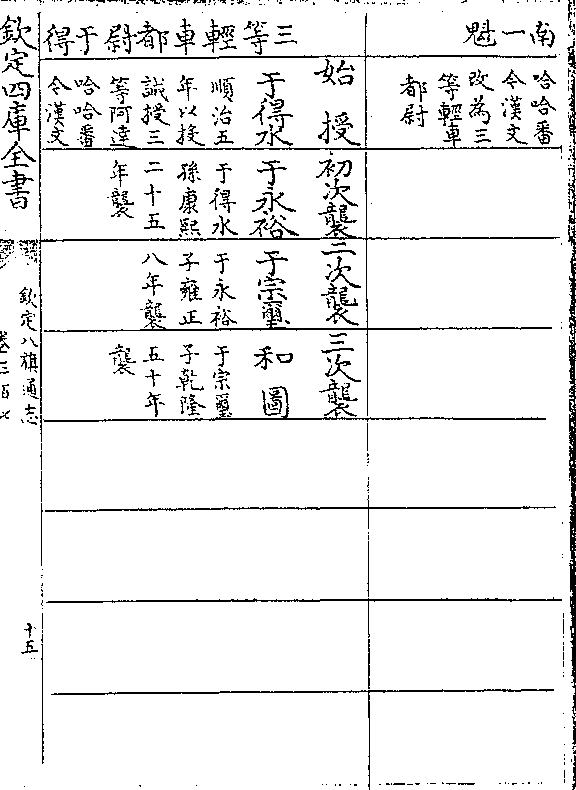 南一魁
哈哈番
今漢文
改為三
等輕車
都尉
三等輕車都尉于得
始授
于得水
順治五
年以投
誠授三
等阿達
哈哈番
今漢文
初次襲
于永裕
于得水
孫康熙
二十五
年襲
二次襲
于宗璽
于永裕
子雍正
八年襲
三次襲
和圖
于宗璽
子乾隆
五十年
襲
欽定四庫全書
欽定八旗通志
十五